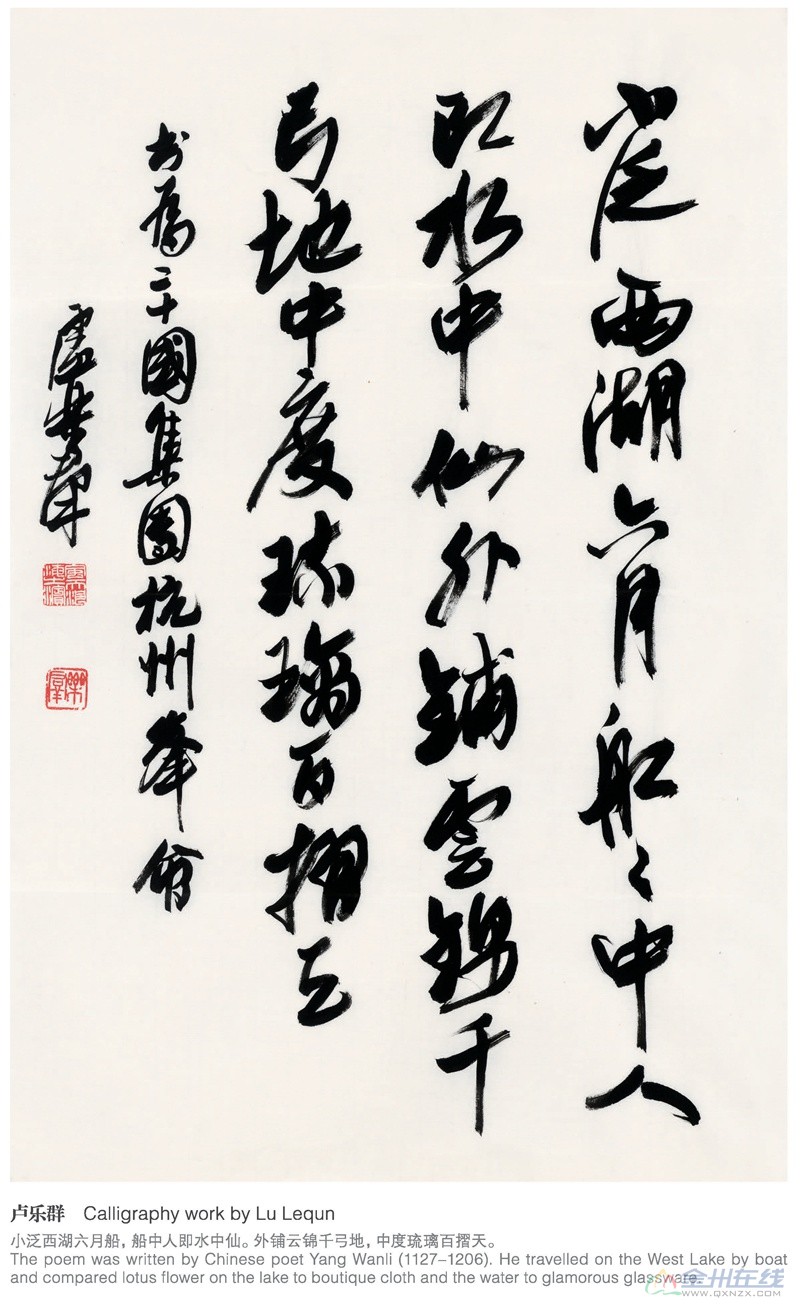 小泛西湖六月船々中人
即水中仙外鋪雲錦千
弓地中度琉璃百摺天
书為二十國集團杭州峯會
盧樂群
卢乐群 Calligraphy work by Lu Lequn
小泛西湖六月船，船中人即水中仙。外铺云锦千弓地，中度琉璃百摺天。
The poem was written by Chinese poet Yang Wanli (1127–1206). He travelled on the West Lake by boat
and compared lotus flower on the lake to boutique cloth and the water to glamorous glassware.
金州在线
WWW.QXNZX.COM